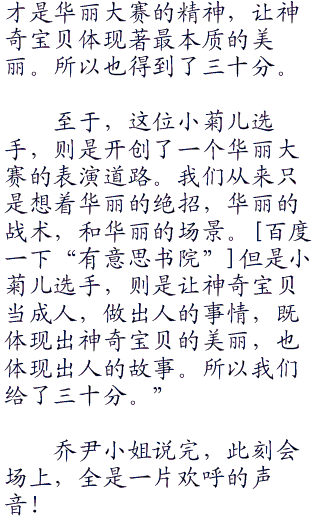 才是华丽大赛的精神，让神
奇宝贝体现著最本质的美
丽。所以也得到了三十分。
至于，这位小菊儿选
手，则是开创了一个华丽大
赛的表演道路。我们从来只
是想着华丽的绝招，华丽的
战术，和华丽的场景。[百度
一下“有意思书院”]但是小
菊儿选手，则是让神奇宝贝
当成人，做出人的事情，既
体现出神奇宝贝的美丽，也
体现出人的故事。所以我们
给了三十分。”
乔尹小姐说完，此刻会
场上，全是一片欢呼的声
音！